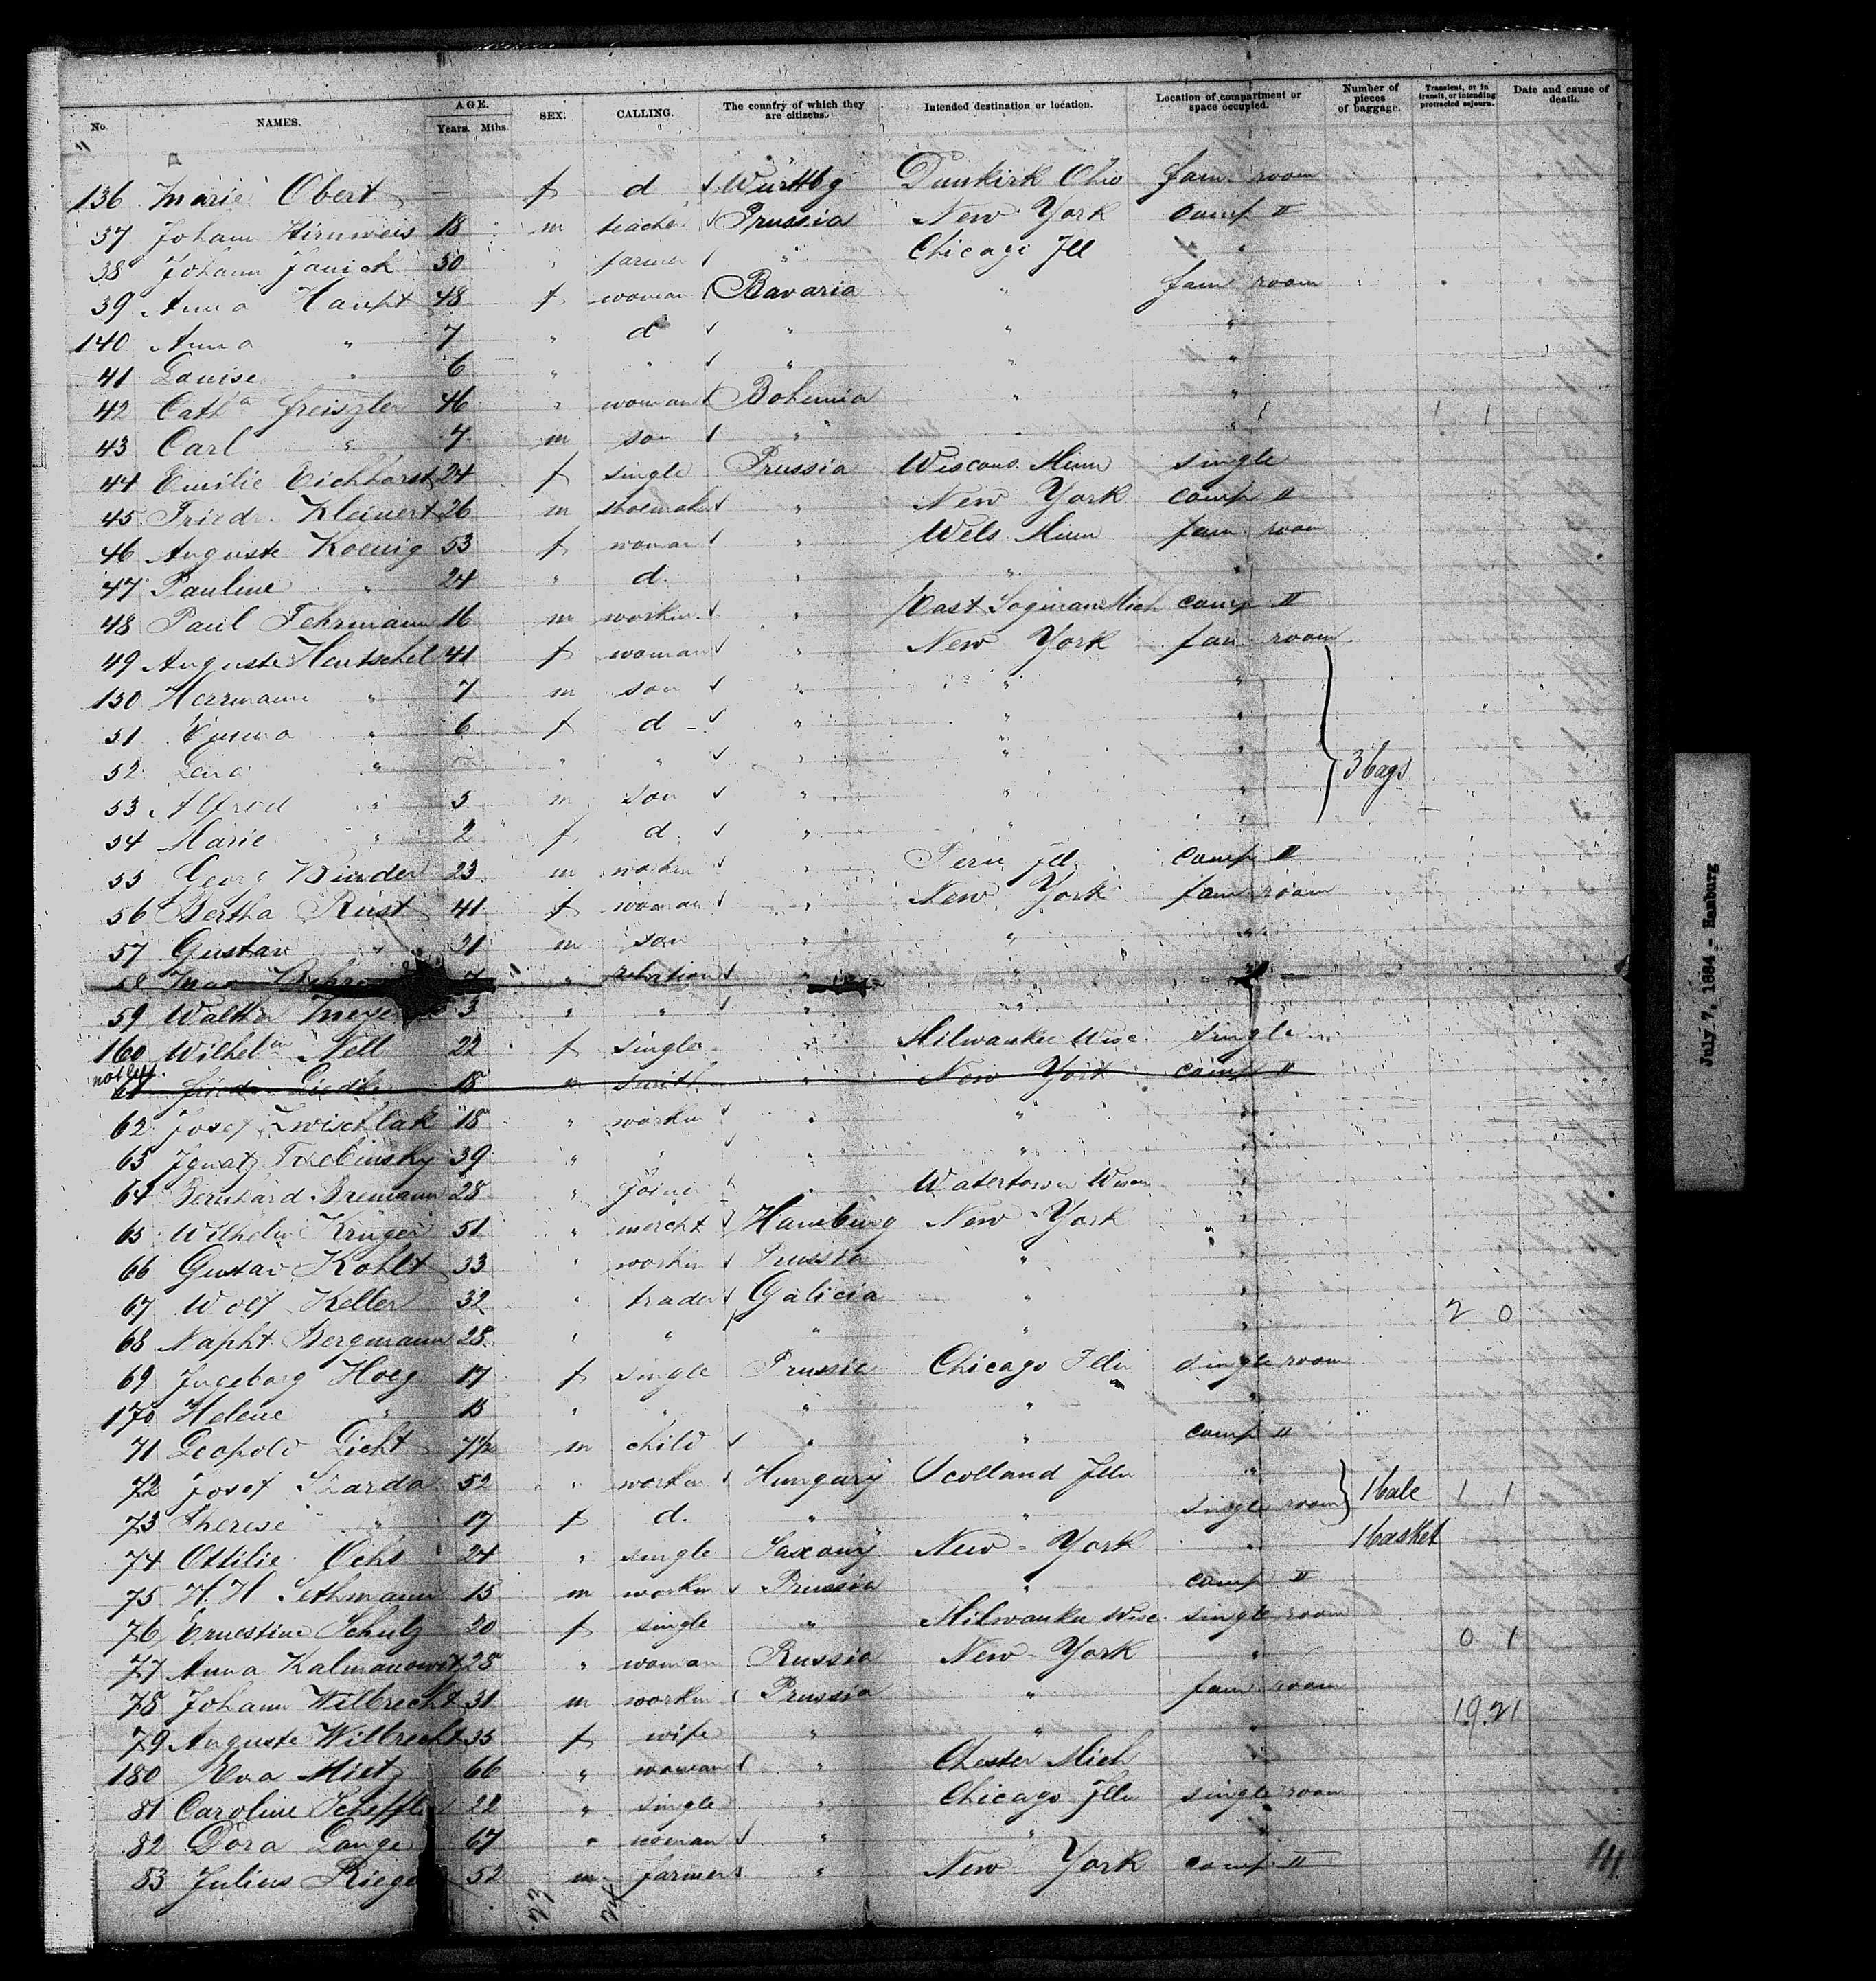 No. NAMES. AGE. Years. Mths. SEX. CALLING. The country of which they are citizens. Intended destination or location. Location of compartment or space occupied. Number of pieces of baggage. Transient, or in transit, or intending protracted sojourn. Date and cause of death.
136 Marie Obert — f d Württbg Dunkirk Ohio fam room
37 Johann Hirnweis 18 m teacher Prussia New York comp II
38 Johann Janich 30 " farmer " Chicago Ill "
39 Anna Haupt 48 f woman Bavaria " fam room
140 Anna " 7 " d " " "
41 Louise " 6 " " " " "
42 Cath'a Freiszler 46 " woman Bohemia " "
43 Carl " 7 m son " " " 1 1
44 Emilie Eichhorst 24 f single Prussia Wiscons. Minn single
45 Friedr. Kleinert 26 m shoemaker " New York comp II
46 Auguste Koenig 53 f woman " Wels Minn fam room
47 Pauline " 24 " d. " " "
48 Paul Fehrmann 16 m workm. " East Saginaw Mich comp II
49 Auguste Hentschel 41 f woman " New York fam room
150 Herrmann " 7 m son " " "
51 Emma " 6 f d " " "
52 " " " " " " 3 bags
53 Alfred " 5 m son " " "
54 Marie " 2 f d. " " "
55 Georg Binder 23 m workm " Peru Ill. comp II
56 Bertha Rust 41 f woman " New York fam room
57 Gustav " 21 m son " " "
58 Max 7 " relation " " "
59 Walther 3 " " " "
160 Wilhel'm Nell 22 f single " Milwaukee Wisc. single
not left.
61 18 " smith New York comp II
62 Josef 18 " workm " " "
63 Ignatz 39 " " " " "
64 Bernhard Bremann 28 " joiner " Watertown Wiscon "
65 Wilhelm Krüger 51 " mercht Hamburg New York "
66 Gustav Kohlt 33 " workm Prussia " "
67 Wolf Keller 32 " trader Galicia " " 2 0
68 Napht. Bergmann 28 " " " " "
69 Ingeborg Hoeg 17 f single Prussia Chicago Illn single room
170 Helene " 15 " " " " "
71 Leopold Licht 7½ m child " " comp II
72 Josef Szarda 52 " workm Hungary Scolland Illn " 1 bale 1 1
73 Therese " 17 f d. " " single room
74 Ottilie Ochs 24 " single Saxony New-York " 1 basket
75 H. H. Sethmann 15 m workm Prussia " comp II
76 Ernestine Schulz 20 f single " Milwaukee Wisc. single room
77 Anna Kalmanowitz 25 " woman Russia New-York " 0 1
78 Johann Wilbrecht 31 m workm Prussia " fam room
79 Auguste Wilbrecht 35 f wife " " " 19 21
180 Eva Mietz 66 " woman " Chester Mich "
81 Caroline Scheffler 22 " single " Chicago Illn single room
82 Dora Lange 67 " woman " " "
83 Julius Rieger 52 m farmer " New York comp II
23 24
July 7, 1884 - Hamburg